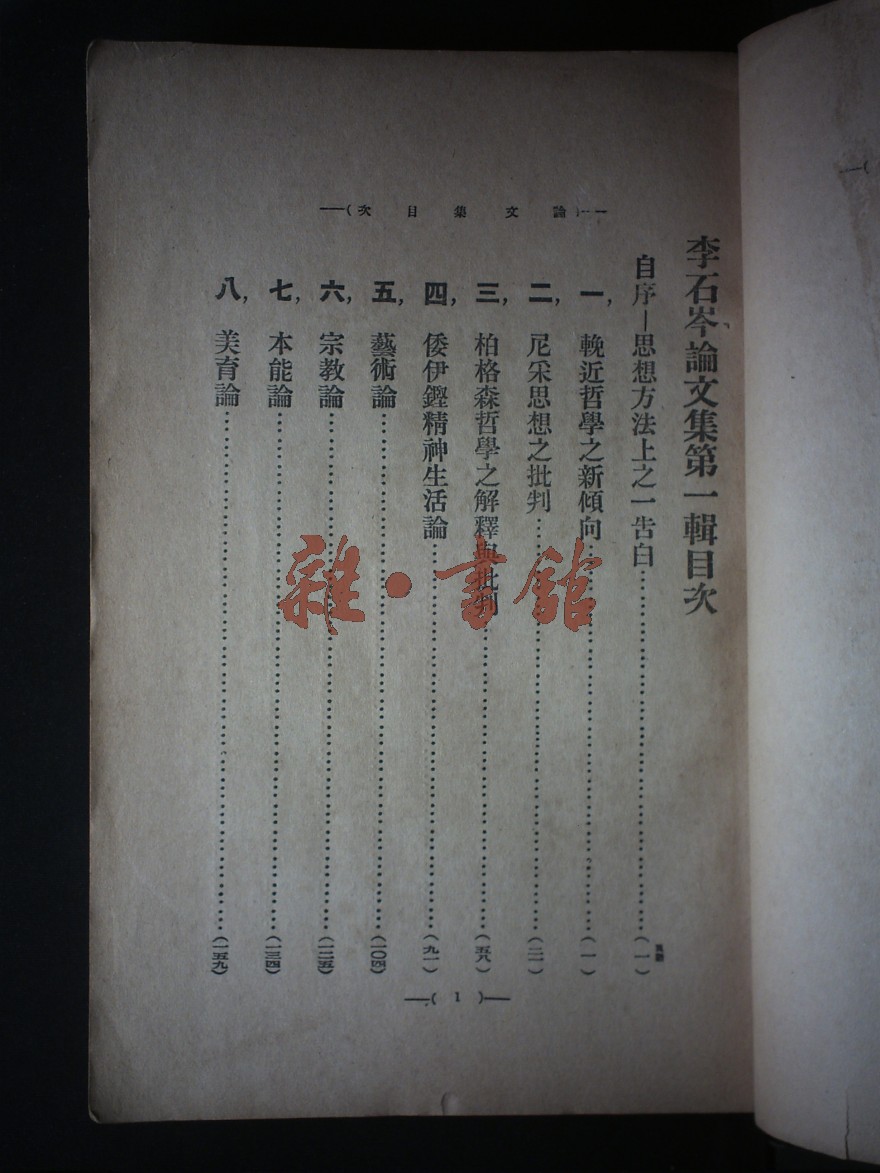 論文集目次
李石岑論文集第一輯目次
自序—思想方法上之一告白……(一)
一，輓近哲學之新傾向……(一)
二，尼采思想之批判……(二一)
三，柏格森哲學之解釋與批判……(五八)
四，倭伊鏗精神生活論……(九一)
五，藝術論……(一〇四)
六，宗教論……(一二五)
七，本能論……(一三四)
八，美育論……(一五九)
—( 1 )—
雜·書館